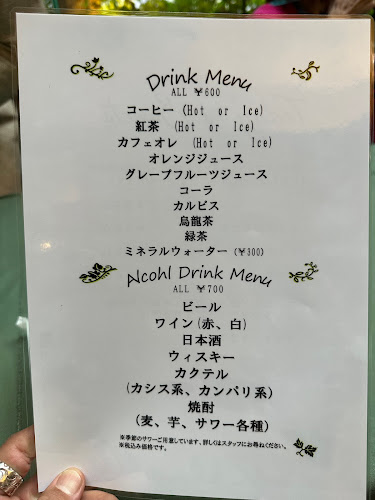 Drink Menu
ALL ￥600
コーヒー (Hot or Ice)
紅茶 (Hot or Ice)
カフェオレ (Hot or Ice)
オレンジジュース
グレープフルーツジュース
コーラ
カルピス
烏龍茶
緑茶
ミネラルウォーター (￥300)
Alcohl Drink Menu
ALL ￥700
ビール
ワイン(赤、白)
日本酒
ウィスキー
カクテル
(カシス系、カンパリ系)
焼酎
(麦、芋、サワー各種)
※季節のサワーご用意しています、詳しくはスタッフにお尋ねください。
※税込み価格です。